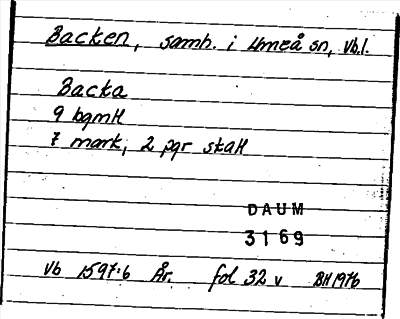 Backen, samh. i Umeå sn, Vb.l.
Backa
9 bgmH
7 mark, 2 pgr skaH
DAUM
3169
Vb 1597:6 År. fol 32 v BH1976